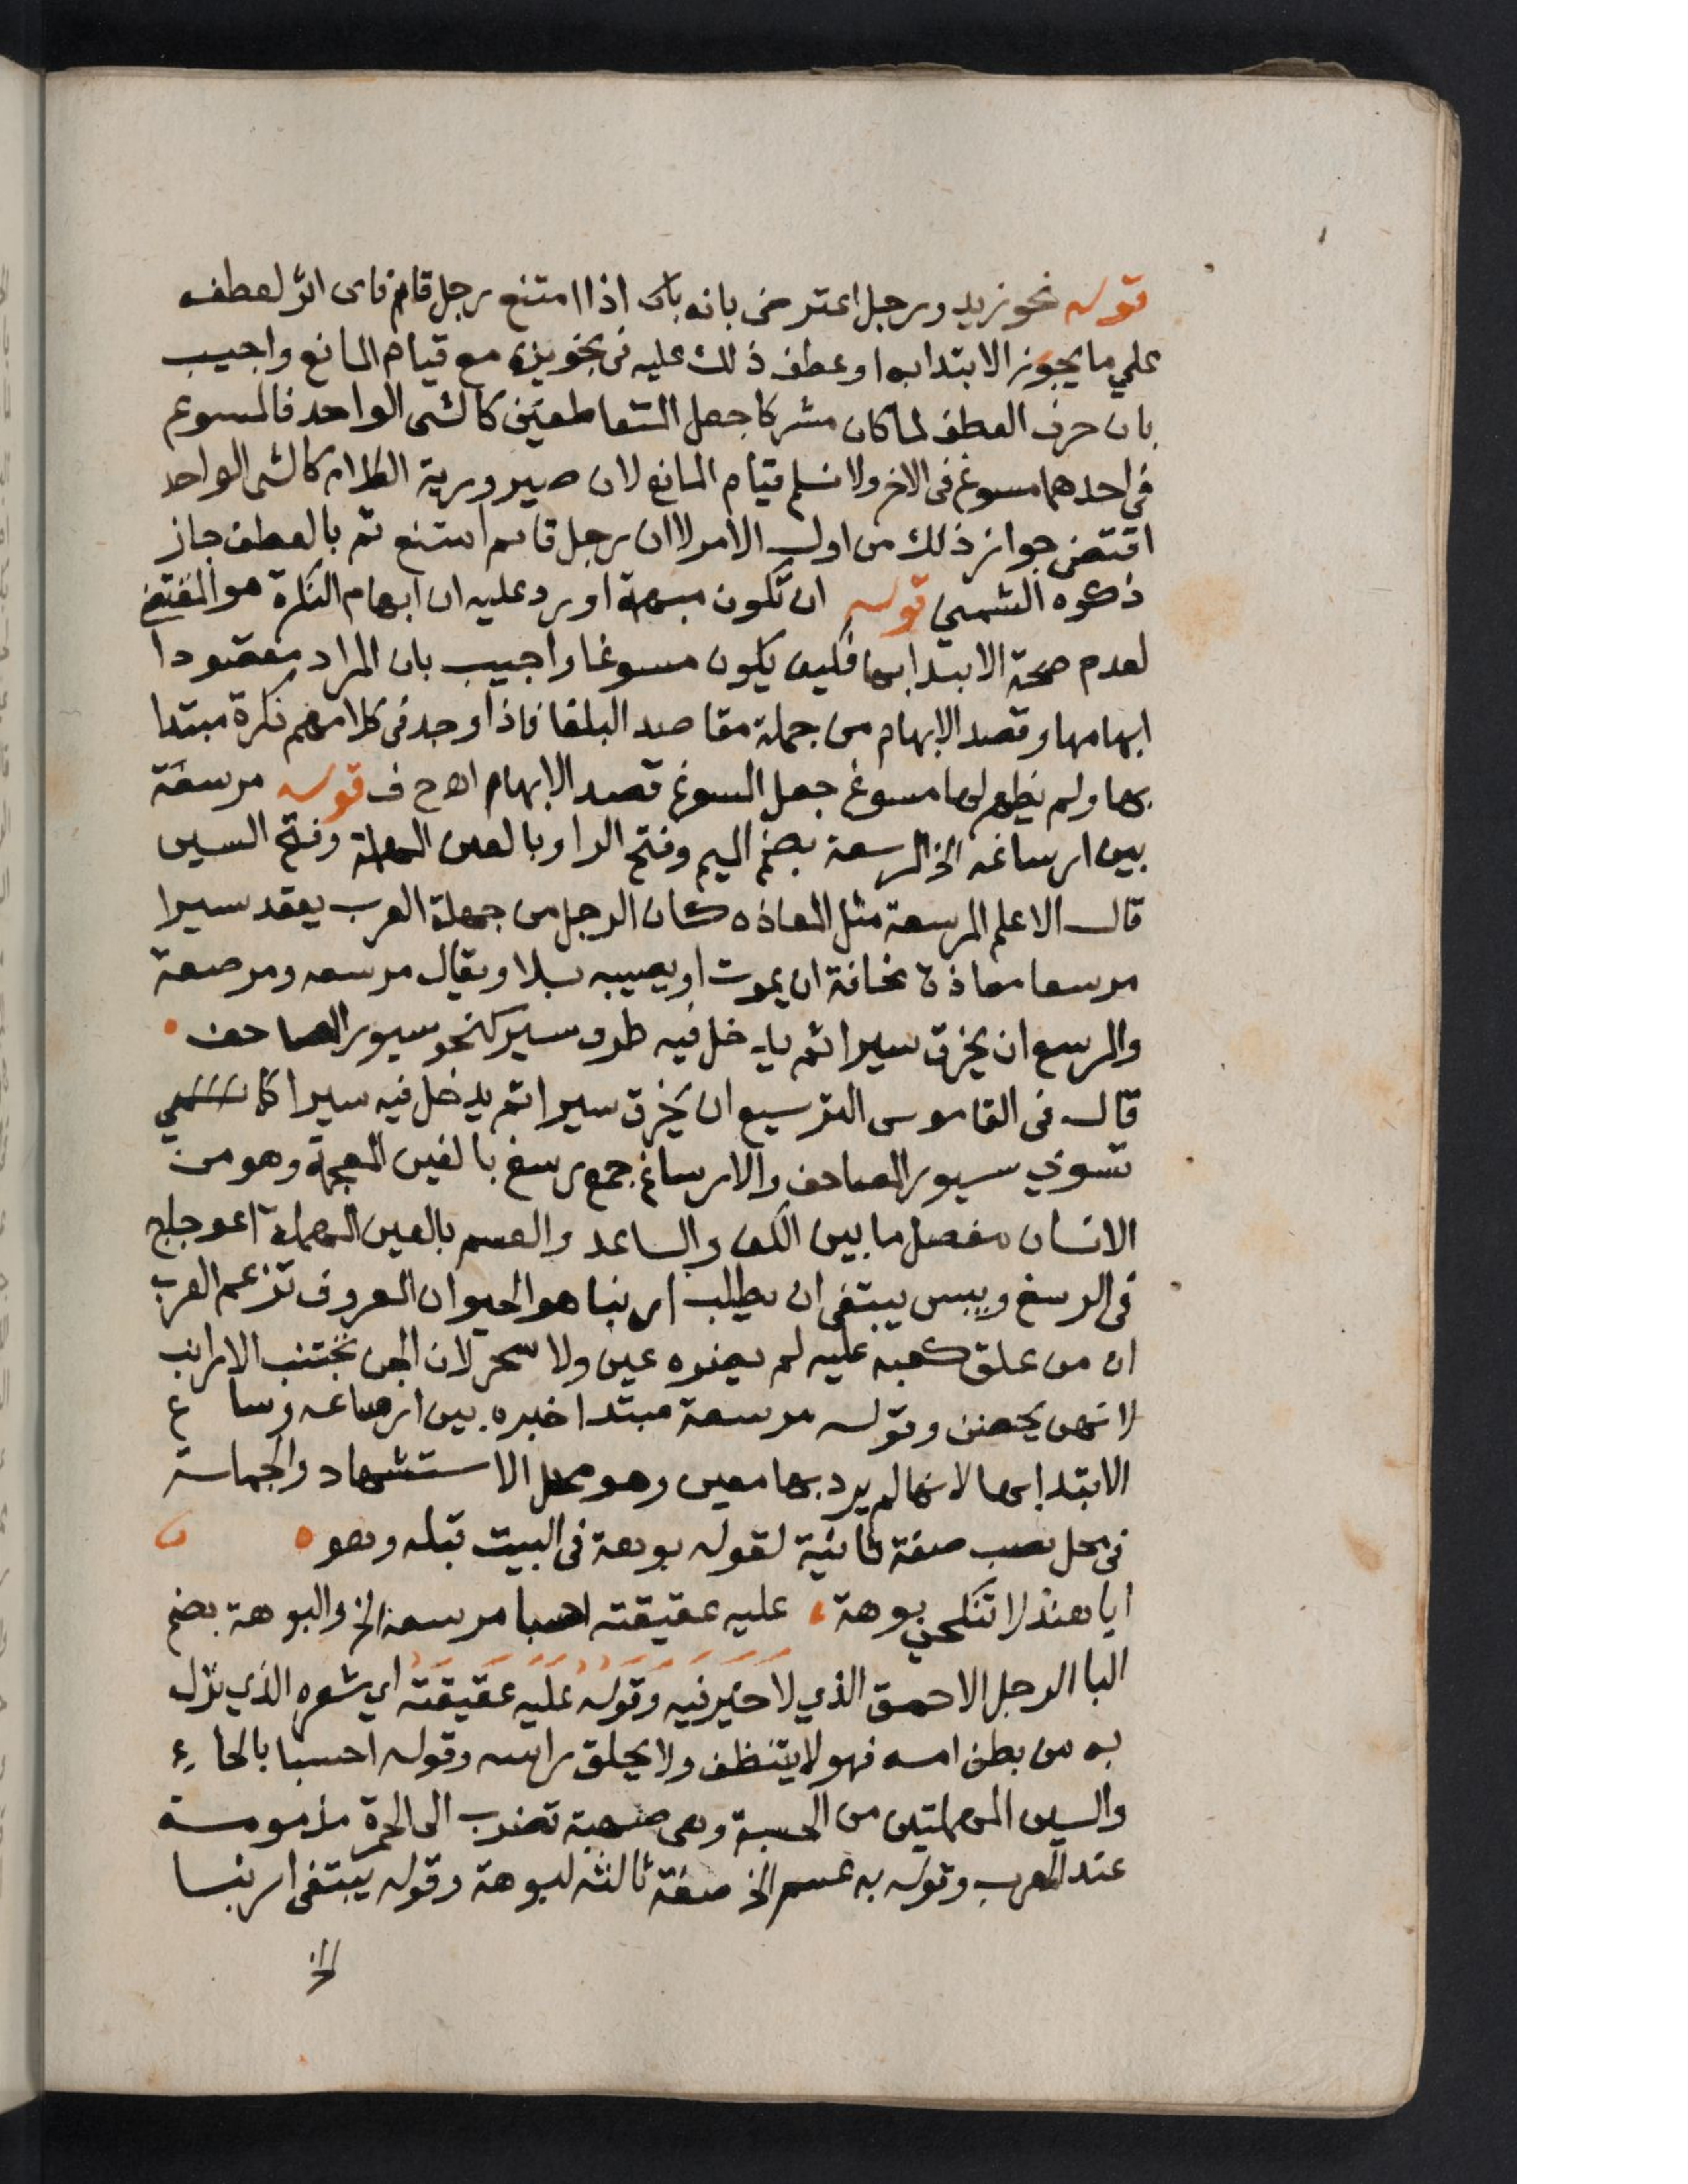 قوله نحو زيد ورجل اعترض بانه بان اذا امتنع رجل قائم فاى اثر لعطفه
علي ما يجوز الابتدا به او عطف ذلك عليه فى تجويزه مع قيام المانع واجيب
بان حرف العطف لما كان مشركا جعل المتعاطفين كالشى الواحد فالمسوغ
في احدهما مسوغ فى الاخر ولا نسلم قيام المانع لان صيرورية الكلام كالشى الواحد
اقتضى جواز ذلك من اول الامر لا ان رجل قائم امتنع ثم بالعطف جاز
ذكره الشمني قوله ان تكون مبهمة اورد عليه ان ابهام النكرة هو المقتضى
لعدم صحة الابتدا بها فكيف يكون مسوغا واجيب بان المراد مقصودا
ابهامها وقصد الابهام من جملة مقاصد البلغا فاذا وجد فى كلامهم نكرة مبتدا
بها ولم يظهر لها مسوغ جعل المسوغ قصد الابهام اهـ ح ف قوله مرسعة
بين ارساغه الخ المرسعة بضم الميم وفتح الرا وبالعين المهملة وفتح السين
قال الاعلم المرسعة مثل المعاذه كان الرجل من جهلة العرب يعقد سيرا
مرسعا معاذة مخافة ان يموت او يصيبه بلا ويقال مرسعه ومرصعة
والرسع ان يخرق سيرا ثم يدخل فيه طرف سير كنحو سيور المصاحف
قال فى القاموس الترسيع ان يخرق سيرا ثم يدخل فيه سيرا كما
تسوي سيور المصاحف والارساغ جمع رسغ بالغين المعجمة وهو من
الانسان مفصل ما بين الكف والساعد والعسم بالعين المهملة اعوجاج
فى الرسغ ويبس يبتغى ان يطلب ارنبا هو الحيوان المعروف تزعم العرب
ان من علق كعبه عليه لم يضره عين ولا سحر لان الجن تجتنب الارانب
لانهن يحضن وقوله مرسعة مبتدا خبره بين ارصاغه وساغ
الابتدا بها لانها لم يرد بها معين وهو محل الاستشهاد والجملة
فى محل نصب صفة ثانية لقوله بوهة فى البيت قبله وهو
ايا هند لا تنكحي بوهة عليه عقيقته احسبا مرسعة الخ والبوهة بضم
البا الرجل الاحمق الذي لا خير فيه وقوله عليه عقيقته اي شعره الذي نزل
به من بطن امه فهو لا يتنظف ولا يحلق راسه وقوله احسبا بالحاء
والسين المهملتين من الحسبة وهى صهبة تضرب الى الحمرة مذمومة
عند العرب وقوله به عسم الخ صفة ثالثة لبوهة وقوله يبتغى ارنبا
الخ